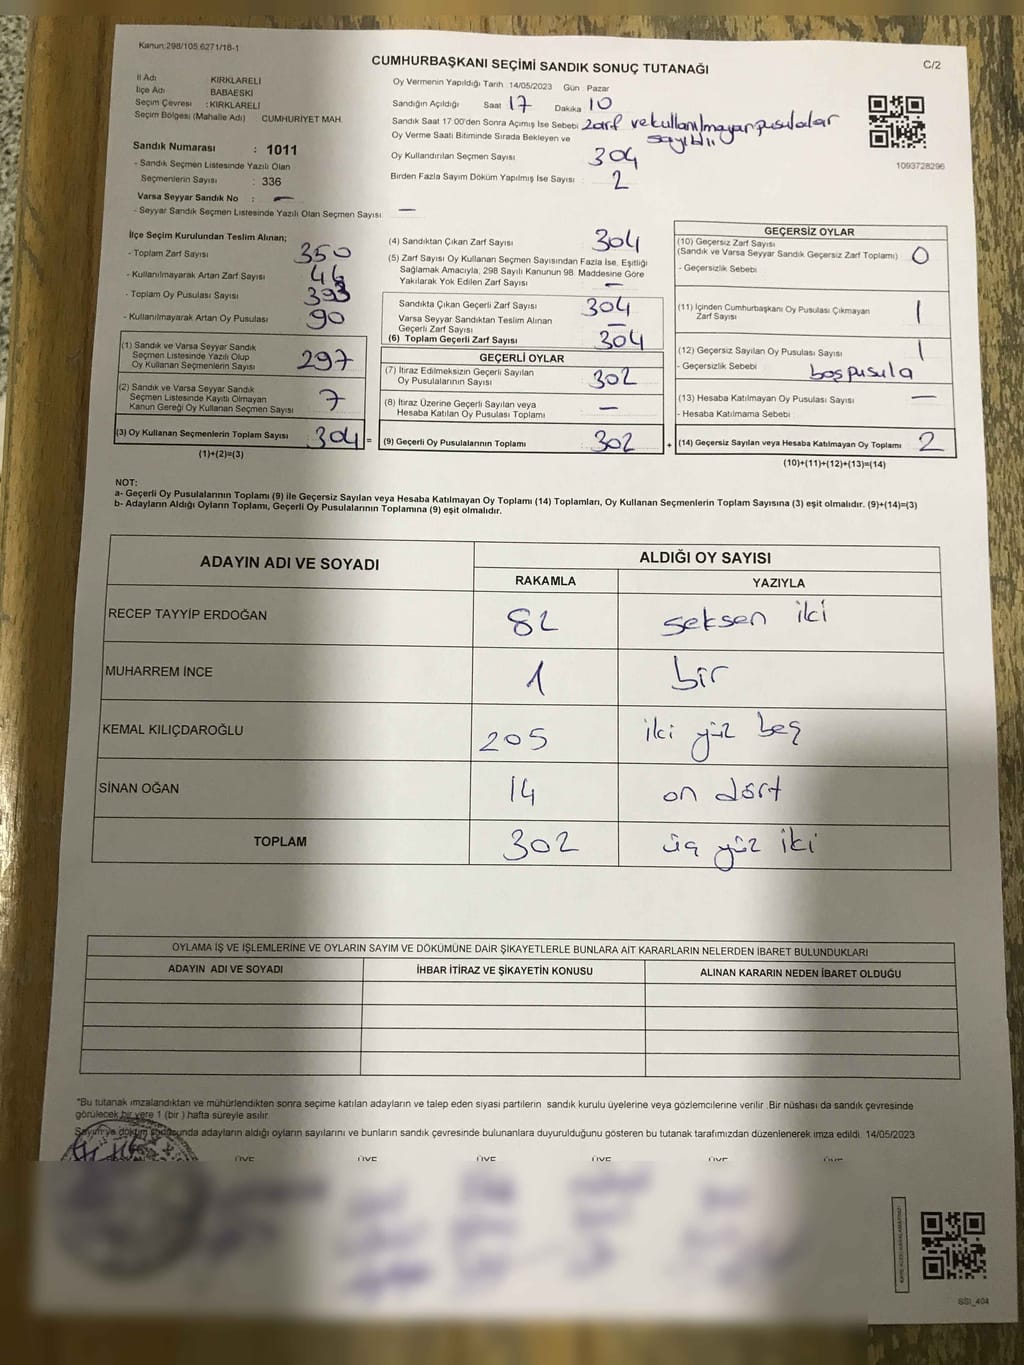 Kanun:298/105.6271/18-1
CUMHURBAŞKANI SEÇİMİ SANDIK SONUÇ TUTANAĞI
C/2
İl Adı KIRKLARELİ
İlçe Adı BABAESKİ
Seçim Çevresi : KIRKLARELİ
Seçim Bölgesi (Mahalle Adı) CUMHURİYET MAH.
Sandık Numarası : 1011
- Sandık Seçmen Listesinde Yazılı Olan
Seçmenlerin Sayısı : 336
Varsa Seyyar Sandık No : –
- Seyyar Sandık Seçmen Listesinde Yazılı Olan Seçmen Sayısı –
Oy Vermenin Yapıldığı Tarih : 14/05/2023 Gün : Pazar
Sandığın Açıldığı Saat 17 Dakika 10
Sandık Saat 17:00'den Sonra Açımış İse Sebebi Zarf ve kullanılmayan pusulalar
sayıldı
Oy Verme Saati Bitiminde Sırada Bekleyen ve
Oy Kullandırılan Seçmen Sayısı 304
Birden Fazla Sayım Döküm Yapılmış İse Sayısı 2
1093728296
İlçe Seçim Kurulundan Teslim Alınan;
- Toplam Zarf Sayısı 350
- Kullanılmayarak Artan Zarf Sayısı 46
- Toplam Oy Pusulası Sayısı 393
- Kullanılmayarak Artan Oy Pusulası 90
(1) Sandık ve Varsa Seyyar Sandık
Seçmen Listesinde Yazılı Olup
Oy Kullanan Seçmenlerin Sayısı 297
(2) Sandık ve Varsa Seyyar Sandık
Seçmen Listesinde Kayıtlı Olmayan
Kanun Gereği Oy Kullanan Seçmen Sayısı 7
(3) Oy Kullanan Seçmenlerin Toplam Sayısı 304 =
(1)+(2)=(3)
(4) Sandıktan Çıkan Zarf Sayısı 304
(5) Zarf Sayısı Oy Kullanan Seçmen Sayısından Fazla İse, Eşitliği
Sağlamak Amacıyla, 298 Sayılı Kanunun 98. Maddesine Göre
Yakılarak Yok Edilen Zarf Sayısı –
Sandıkta Çıkan Geçerli Zarf Sayısı 304
Varsa Seyyar Sandıktan Teslim Alınan
Geçerli Zarf Sayısı –
(6) Toplam Geçerli Zarf Sayısı 304
GEÇERLİ OYLAR
(7) İtiraz Edilmeksizin Geçerli Sayılan
Oy Pusulalarının Sayısı 302
(8) İtiraz Üzerine Geçerli Sayılan veya
Hesaba Katılan Oy Pusulası Toplamı –
(9) Geçerli Oy Pusulalarının Toplamı 302 +
GEÇERSİZ OYLAR
(10) Geçersiz Zarf Sayısı
(Sandık ve Varsa Seyyar Sandık Geçersiz Zarf Toplamı) 0
- Geçersizlik Sebebi
(11) İçinden Cumhurbaşkanı Oy Pusulası Çıkmayan
Zarf Sayısı 1
(12) Geçersiz Sayılan Oy Pusulası Sayısı 1
- Geçersizlik Sebebi boş pusula
(13) Hesaba Katılmayan Oy Pusulası Sayısı –
- Hesaba Katılmama Sebebi
(14) Geçersiz Sayılan veya Hesaba Katılmayan Oy Toplamı 2
(10)+(11)+(12)+(13)=(14)
NOT:
a- Geçerli Oy Pusulalarının Toplamı (9) ile Geçersiz Sayılan veya Hesaba Katılmayan Oy Toplamı (14) Toplamları, Oy Kullanan Seçmenlerin Toplam Sayısına (3) eşit olmalıdır. (9)+(14)=(3)
b- Adayların Aldığı Oyların Toplamı, Geçerli Oy Pusulalarının Toplamına (9) eşit olmalıdır.
ADAYIN ADI VE SOYADI ALDIĞI OY SAYISI
RAKAMLA YAZIYLA
RECEP TAYYİP ERDOĞAN 82 seksen iki
MUHARREM İNCE 1 bir
KEMAL KILIÇDAROĞLU 205 iki yüz beş
SİNAN OĞAN 14 on dört
TOPLAM 302 üç yüz iki
OYLAMA İŞ VE İŞLEMLERİNE VE OYLARIN SAYIM VE DÖKÜMÜNE DAİR ŞİKAYETLERLE BUNLARA AİT KARARLARIN NELERDEN İBARET BULUNDUKLARI
ADAYIN ADI VE SOYADI İHBAR İTİRAZ VE ŞİKAYETİN KONUSU ALINAN KARARIN NEDEN İBARET OLDUĞU
"Bu tutanak imzalandıktan ve mühürlendikten sonra seçime katılan adayların ve talep eden siyasi partilerin sandık kurulu üyelerine veya gözlemcilerine verilir. Bir nüshası da sandık çevresinde
görülecek bir yere 1 (bir ) hafta süreyle asılır.
Sayım ve döküm sonucunda adayların aldığı oyların sayılarını ve bunların sandık çevresinde bulunanlara duyurulduğunu gösteren bu tutanak tarafımızdan düzenlenerek imza edildi. 14/05/2023
ÜYE ÜYE ÜYE ÜYE ÜYE ÜYE
SSI_404